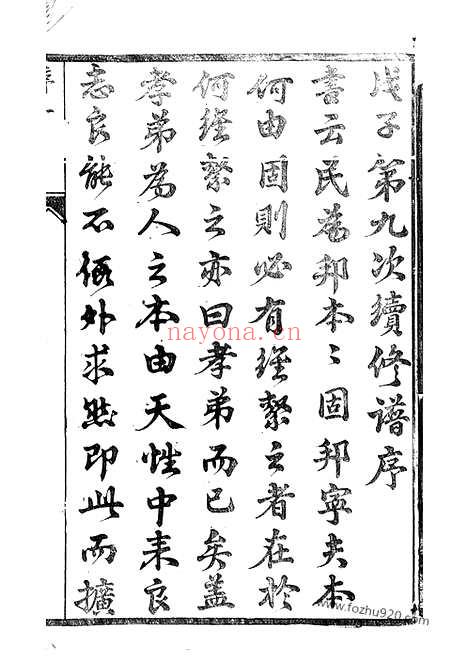 戊子第九次續修譜序
書云民為邦本〻固邦寧夫本
何由固則必有維繫之者在於
何維繫之亦曰孝弟而已矣蓋
孝弟為人之本由天性中来良
志良能不假外求然即此而擴
nayona.cn
www.fozhu920.com